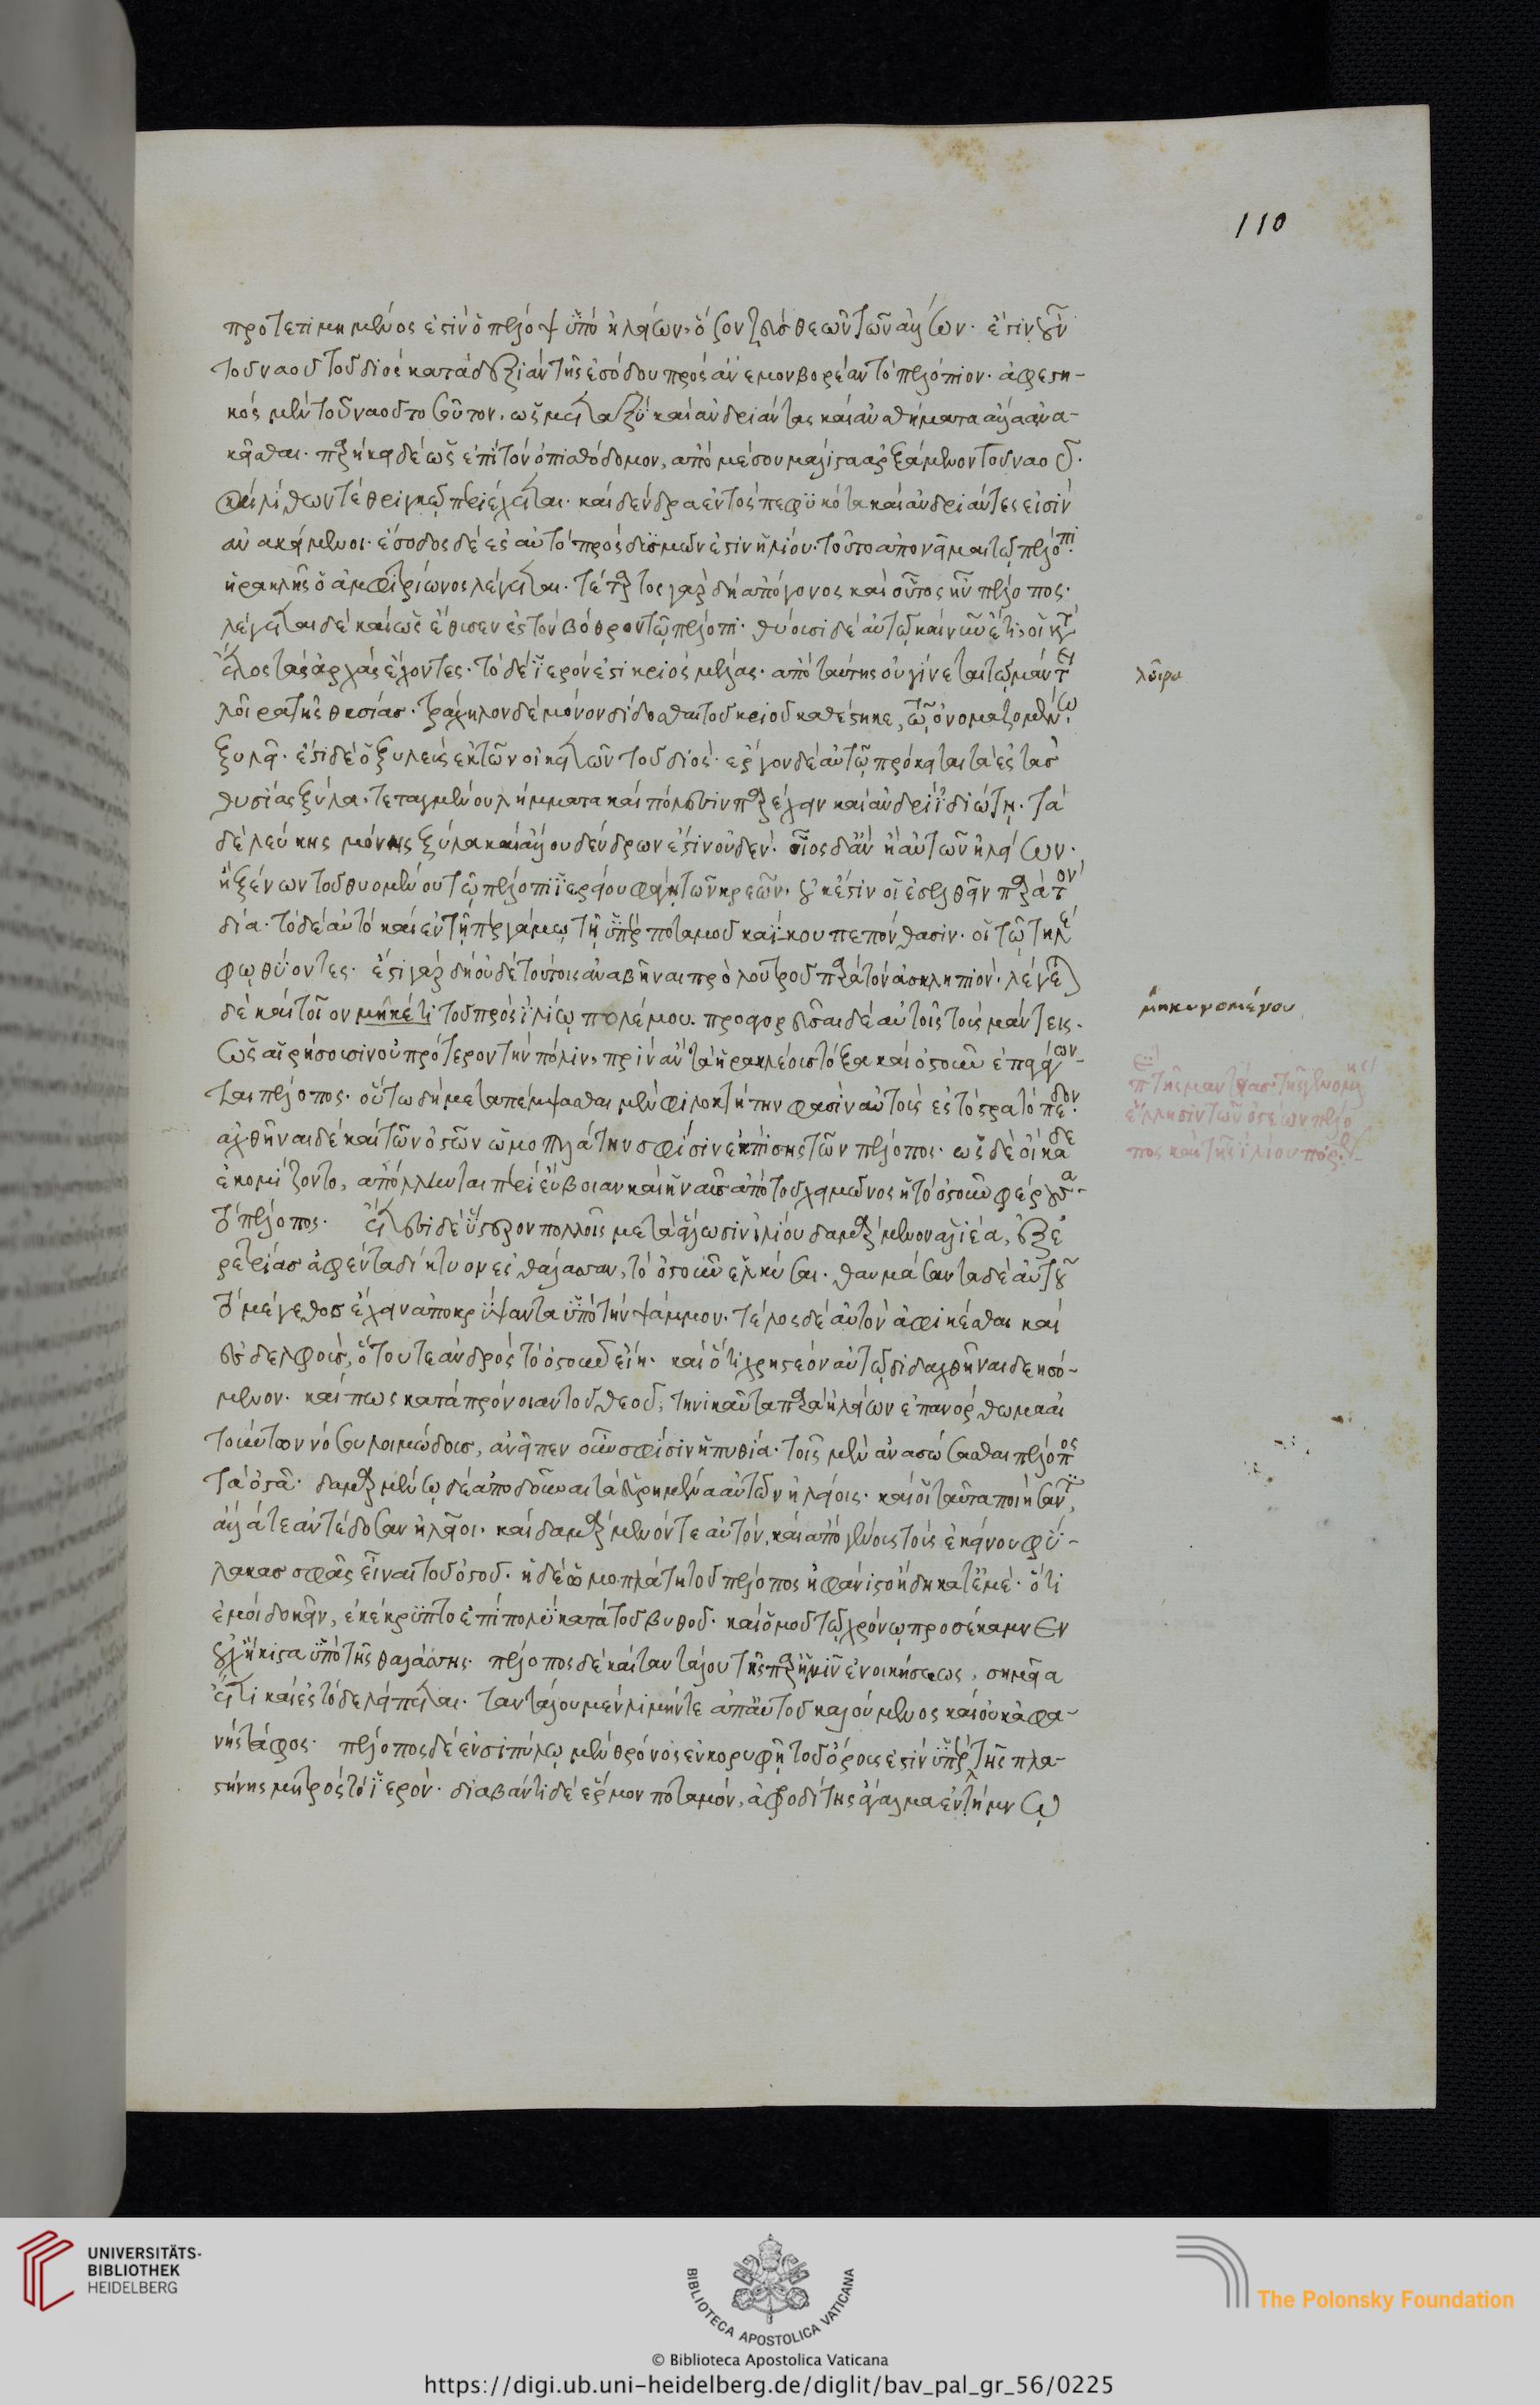 110
προτετιμημένος ἐστὶν ὁ πέλοψ ὑπὸ ἠλείων, ὅσον ζεὺς θεῶν τῶν ἄλλων. ἔστιν οὖν
τοῦ ναοῦ τοῦ διὸς κατὰ δεξιὰν τῆς ἐσόδου πρὸς ἄνεμον βορέαν τὸ πελόπιον. ἀφεστη-
κὸς μὲν τοῦ ναοῦ τοσοῦτον, ὡς μεταξὺ καὶ ἀνδριάντας καὶ ἀναθήματα ἄλλα ἀνα-
κεῖσθαι. παρήκει δὲ ὡς ἐπὶ τὸν ὀπισθόδομον, ἀπὸ μέσου μάλιστα ἀρξάμενον τοῦ ναοῦ.
καὶ λίθων τὲ θριγκῷ περιέχεται. καὶ δένδρα ἐντὸς πεφυκότα καὶ ἀνδριάντες εἰσὶν
ἀνακείμενοι. ἔσοδος δὲ ἐς αὐτὸ πρὸς δυσμῶν ἐστὶν ἡλίου. τοῦτο ἀπονεῖμαι τῷ πέλοπι
ἡρακλῆς ὁ ἀμφιτρίωνος λέγεται. τέταρτος γὰρ δὴ ἀπόγονος καὶ οὗτος ἦν πέλοπος.
λέγεται δὲ καὶ ὡς ἔθυσεν ἐς τὸν βόθρον τῷ πέλοπι. θύουσι δὲ αὐτῷ καὶ νῦν ἔτι, οἱ κατ
ἔτος τὰς ἀρχὰς ἔχοντες. τὸ δὲ ἱερόν ἐστι κριὸς μέλας. ἀπὸ ταύτης οὐ γίνεται τῷ μάντει
μοῖρα τῆς θυσίας. τράχηλον δὲ μόνον δίδοσθαι τοῦ κριοῦ καθέστηκε, τῷ ὀνομαζομένῳ
ξυλεῖ. ἔστι δὲ ὁ ξυλεὺς ἐκ τῶν οἰκετῶν τοῦ διός. ἔργον δὲ αὐτῷ πρόκειται τὰ ἐς τὰς
θυσίας ξύλα. τεταγμένου λήμματα καὶ πόλεσιν παρέχειν καὶ ἀνδρὶ ἰδιώτῃ. τὰ
δὲ λεύκης μόνης ξύλα καὶ ἄλλου δένδρων ἐστὶν οὐδέν. ὅστις δ' ἂν ἢ αὐτῶν ἠλείων.
ἢ ξένων τοῦ θυομένου τῷ πέλοπι ἱερείου φάγῃ τῶν κρεῶν, οὐκ ἔστιν οἱ ἐσελθεῖν παρὰ τὸν
δία. τὸ δὲ αὐτὸ καὶ ἐν τῇ περγάμῳ τῇ ὑπὲρ ποταμοῦ καΐκου πεπόνθασιν. οἱ τῷ τηλέ
φῳ θύοντες. ἔστι γὰρ δὴ οὐδὲ τούτοις ἀναβῆναι πρὸ λουτροῦ παρὰ τὸν ἀσκληπιόν. λέγεται
δὲ καὶ τοῖον μηκέτι τοῦ πρὸς ἰλίῳ πολέμου. προαγορεῦσαι δὲ αὐτοῖς τοὺς μάντεις.
ὡς αἱρήσουσιν οὐ πρότερον τὴν πόλιν, πρὶν ἂν τὰ ἡρακλέους τόξα καὶ ὀστοῦν ἐπαγάγων-
ται πέλοπος. οὕτω δὴ μεταπέμψασθαι μὲν φιλοκτήτην φασὶν αὐτοὺς ἐς τὸ στρατόπεδον.
ἀχθῆναι δὲ καὶ τῶν ὀστῶν ὠμοπλάτην σφίσιν ἐκ πίσης τῶν πέλοπος. ὡς δὲ οἴκαδε
ἐκομίζοντο, ἀπόλλυται περὶ εὔβοιαν καὶ ἡ ναῦς ἀπὸ τοῦ χειμῶνος ἡ τὸ ὀστοῦν φέρουσα
τὸ πέλοπος. ἔτεσι δὲ ὕστερον πολλοῖς μετὰ ἅλωσιν ἰλίου δαμαρμένον ἁλιέα, ἐξ ἐ
ρετρίας ἀφέντα δίκτυον ἐς θάλασσαν, τὸ ὀστοῦν ἑλκύσαι. θαυμάσαντα δὲ αὐτοῦ
τὸ μέγεθος ἔχειν ἀποκρύψαντα ὑπὸ τὴν ψάμμον. τέλος δὲ αὐτὸν ἀφικέσθαι καὶ
ἐς δελφοὺς, ὅτου τε ἀνδρὸς τὸ ὀστοῦν εἴη. καὶ ὅτι χρηστέον αὐτῷ διδαχθῆναι δεησό-
μενον. καί πως κατὰ πρόνοιαν τοῦ θεοῦ, τηνικαῦτα παρὰ ἠλείων ἐπανόρθωμα αἰ
τούντων νόσου λοιμώδους, ἀνεῖπεν οὖν σφίσιν ἡ πυθία. τοῖς μὲν ἀνασώσασθαι πέλοπος
τὰ ὀστᾶ. δαμαρμένῳ δὲ ἀποδοῦναι τὰ εὑρημένα αὐτῶν ἠλείοις. καὶ οἱ ταῦτα ποιήσαντι,
ἄλλά τε ἀντέδοσαν ἠλεῖοι. καὶ δαμαρμένον τε αὐτὸν, καὶ ἀπογόνους τοὺς ἐκείνου φύ-
λακας σφᾶς εἶναι τοῦ ὀστοῦ. ἡ δὲ ὠμοπλάτη τοῦ πέλοπος ἠφάνιστο ἤδη κατ' ἐμὲ. ὅτι
ἐμοὶ δοκεῖν, ἐκέκρυπτο ἐπὶ πολὺ κατὰ τοῦ βυθοῦ. καὶ ὁμοῦ τῷ χρόνῳ προσέκαμνεν
οὐχ ἥκιστα ὑπὸ τῆς θαλάσσης. πέλοπος δὲ καὶ ταντάλου τῆς παρ' ἡμῖν ἐνοικήσεως, σημεῖα
ἔτι καὶ ἐς τόδε λείπεται. ταντάλου μὲν λίμνη τε ἀπ' αὐτοῦ καλούμενος καὶ οὐκ ἀφα-
νὴς τάφος. πέλοπος δὲ ἐν σιπύλῳ μὲν θρόνος ἐν κορυφῇ τοῦ ὄρους ἐστὶν ὑπὲρ τῆς πλα-
στήνης μητρὸς τὸ ἱερόν. διαβάντι δὲ ἕρμον ποταμὸν, ἀφροδίτης ἄγαλμα ἐν τήμνῳ
μοῖρα
μηκυνομένου
περὶ τῆς μαντείας τῆς γενομένης
ἕλλησιν τῶν ὀστέων πέλο
πος καὶ τῆς ἰλίου
UNIVERSITÄTS-
BIBLIOTHEK
HEIDELBERG
BIBLIOTECA APOSTOLICA VATICANA
© Biblioteca Apostolica Vaticana
The Polonsky Foundation
https://digi.ub.uni-heidelberg.de/diglit/bav_pal_gr_56/0225